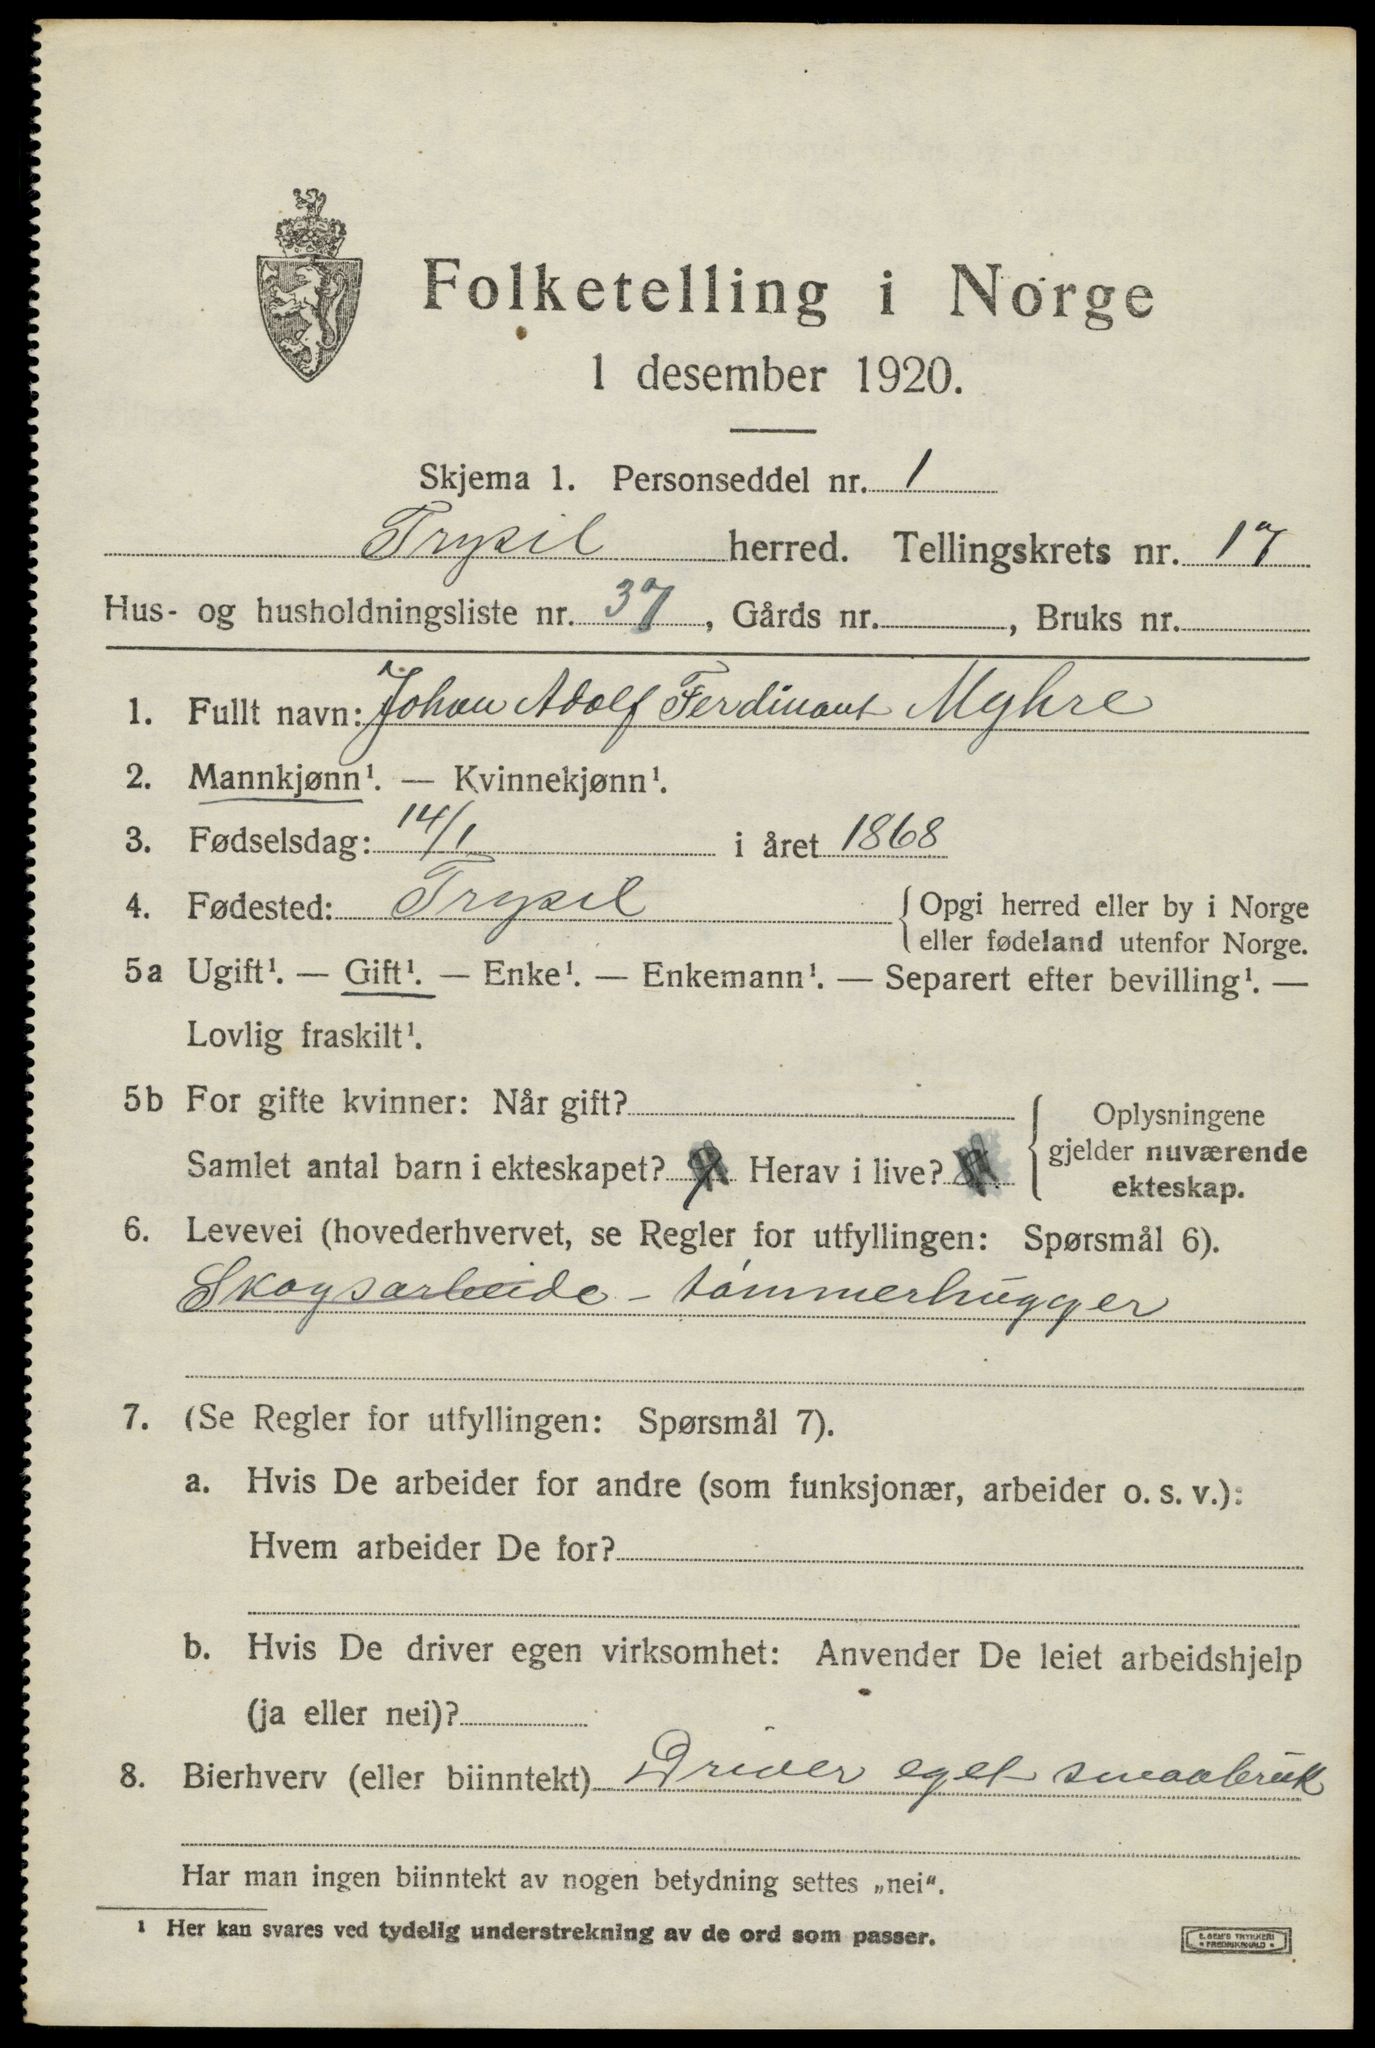 Folketelling i Norge
1 desember 1920.
Skjema 1. Personseddel nr. 1
Trysil herred. Tellingskrets nr. 17
Hus- og husholdningsliste nr. 37, Gårds nr. , Bruks nr.
1. Fullt navn: Johan Adolf Ferdinant Myhre
2. Mannkjønn¹. — Kvinnekjønn¹.
3. Fødselsdag: 14/1 i året 1868
4. Fødested: Trysil { Opgi herred eller by i Norge
eller fødeland utenfor Norge.
5a Ugift¹. — Gift¹. — Enke¹. — Enkemann¹. — Separert efter bevilling¹. —
Lovlig fraskilt¹.
5b For gifte kvinner: Når gift?
Samlet antal barn i ekteskapet? Herav i live?
{ Oplysningene
gjelder nuværende
ekteskap.
6. Levevei (hovederhvervet, se Regler for utfyllingen: Spørsmål 6).
Skogsarbeide - tømmerhugger
7. (Se Regler for utfyllingen: Spørsmål 7).
a. Hvis De arbeider for andre (som funksjonær, arbeider o. s. v.):
Hvem arbeider De for?
b. Hvis De driver egen virksomhet: Anvender De leiet arbeidshjelp
(ja eller nei)?
8. Bierhverv (eller biinntekt) Driver eget smaabruk
Har man ingen biinntekt av nogen betydning settes „nei“.
¹ Her kan svares ved tydelig understrekning av de ord som passer.
E. SEM'S TRYKKERI
• FREDRIKSHALD •